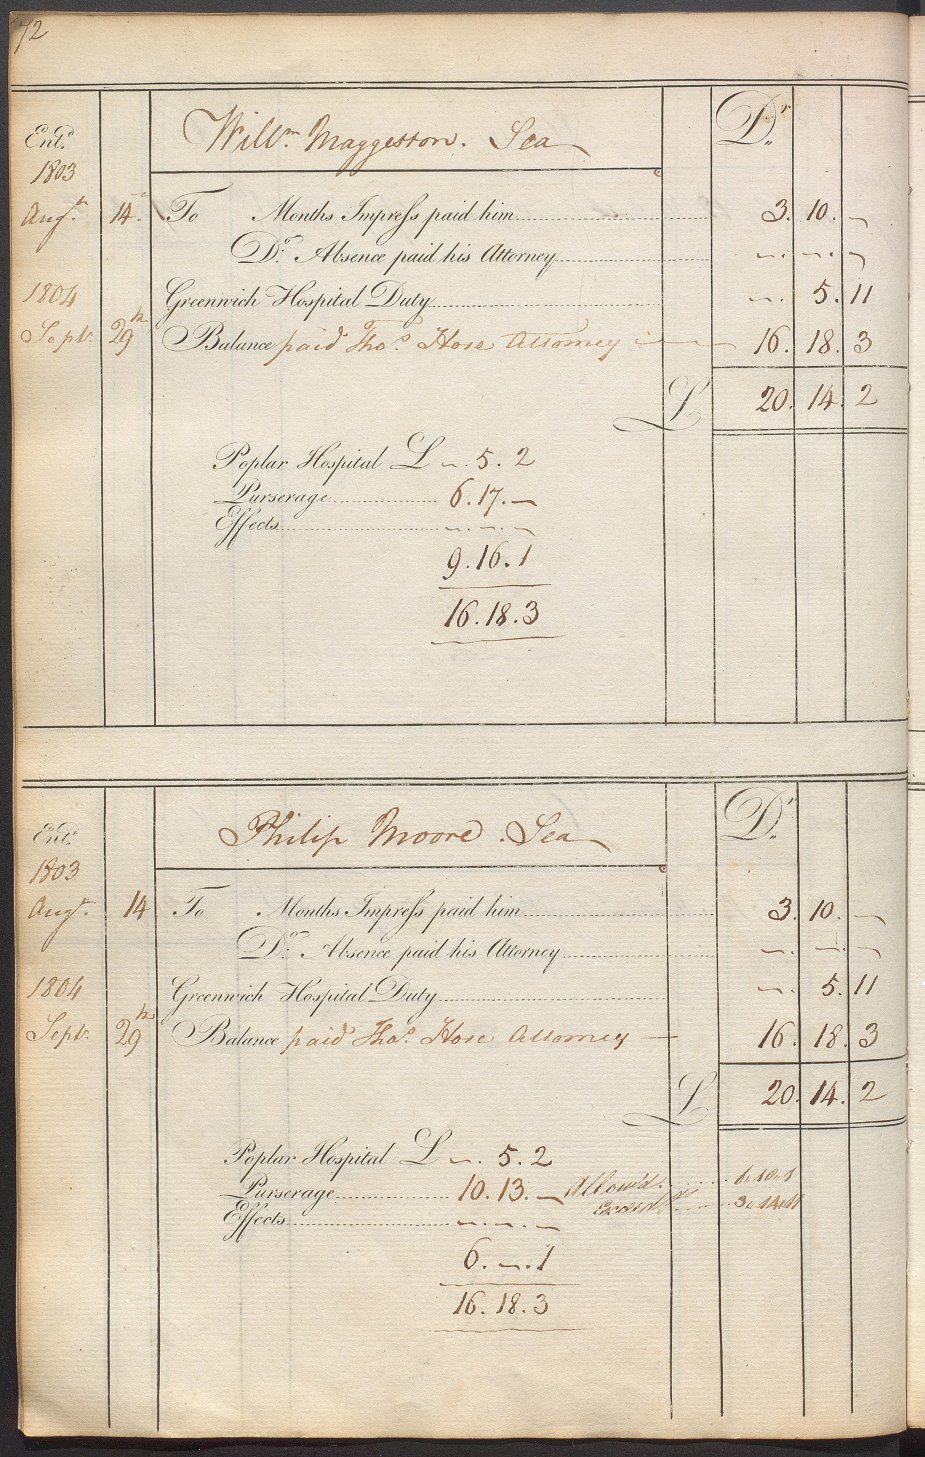 72
Ent.d
1803
Willm. Maggeston. Sea
Dr.
Augt. 14. To Months Impress paid him 3. 10. —
Do. Absence paid his Attorney —. —. —
1804 Greenwich Hospital Duty —. 5. 11
Sept. 29th Balance paid Thos. Hose Attorney 16. 18. 3
L 20. 14. 2
Poplar Hospital L —. 5. 2
Purserage 6. 17. —
Effects —. —. —
9. 16. 1
16. 18. 3
Ent.d
1803
Philip Moore. Sea
Dr.
Augt. 14 To Months Impress paid him 3. 10. —
Do. Absence paid his Attorney —. —. —
1804 Greenwich Hospital Duty —. 5. 11
Sept. 29th Balance paid Thos. Hose Attorney — 16. 18. 3
L 20. 14. 2
Poplar Hospital L —. 5. 2
Purserage 10. 13. — Allow'd.
Effects —. —. —
6. —. 1
16. 18. 3